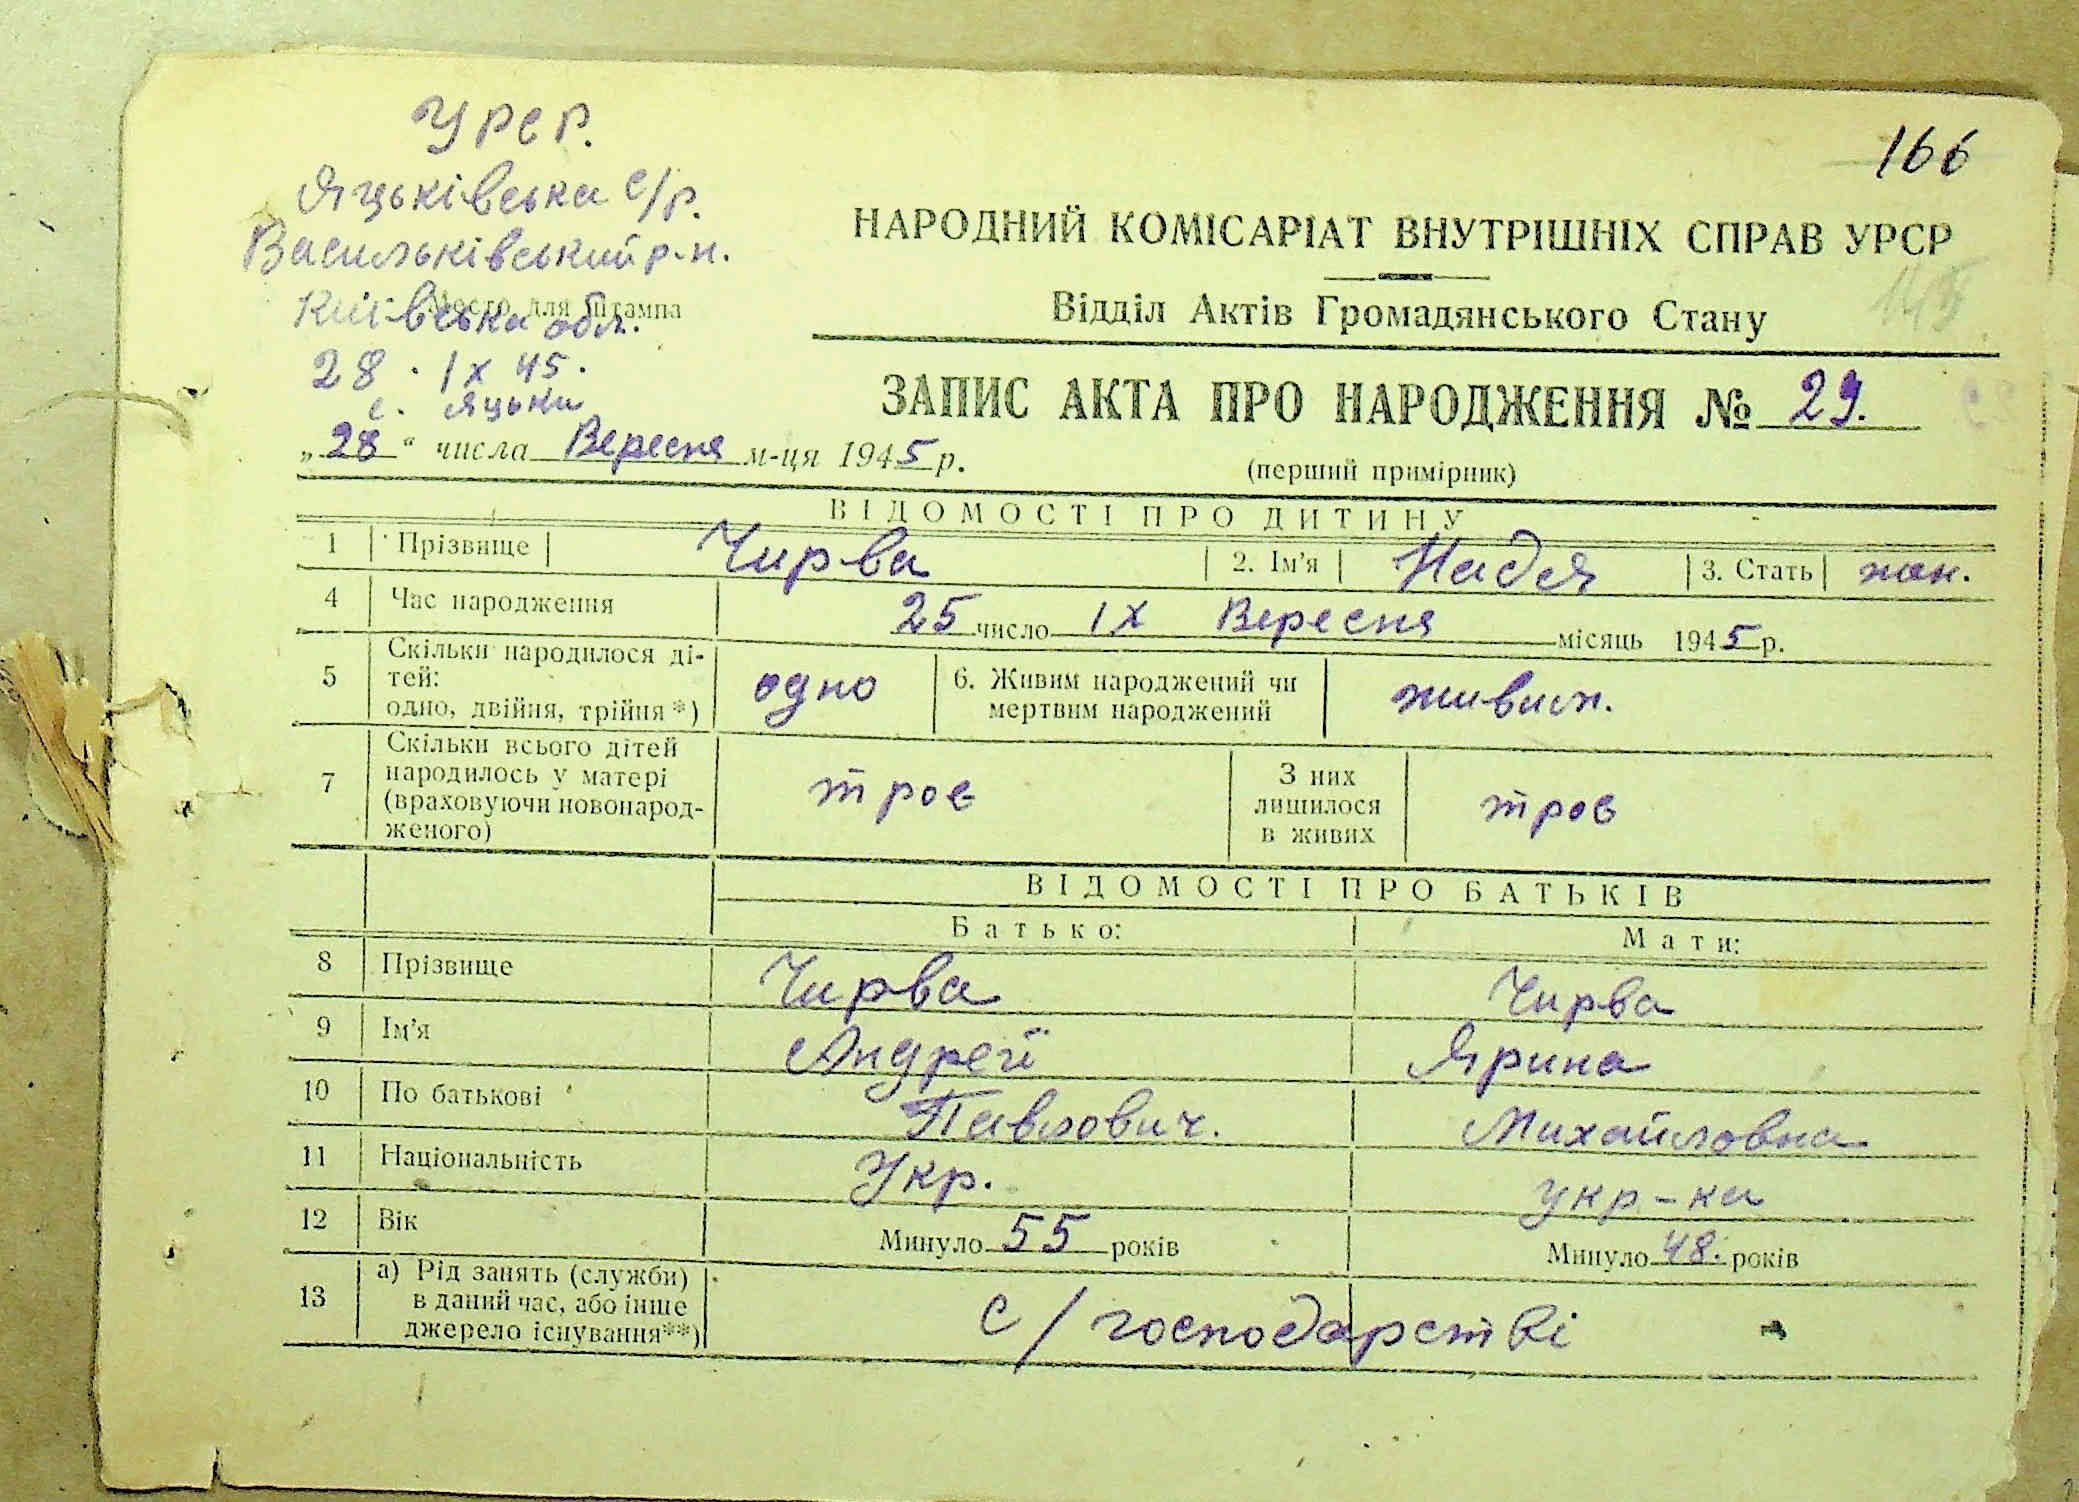 УРСР.
166
Яцьківська с/р.
Васильківський р-н.
НАРОДНИЙ КОМІСАРІАТ ВНУТРІШНІХ СПРАВ УРСР
Место для штампа
Київська обл.
Відділ Актів Громадянського Стану
28 . IX 45.
с. Яцьки
ЗАПИС АКТА ПРО НАРОДЖЕННЯ № 29.
„28“ числа Вересня м-ця 1945 р.
(перший примірник)
ВІДОМОСТІ ПРО ДИТИНУ
1 Прізвище Чирва 2. Ім'я Надя 3. Стать жен.
4 Час народження 25 число IX Вересня місяць 1945 р.
5 Скільки народилося ді-
тей:
одно, двійня, трійня*) одно 6. Живим народжений чи
мертвим народжений живим.
7 Скільки всього дітей
народилось у матері
(враховуючи новонарод-
женого) троє З них
лишилося
в живих троє
ВІДОМОСТІ ПРО БАТЬКІВ
Батько: Мати:
8 Прізвище Чирва Чирва
9 Ім'я Андрей Ярина
10 По батькові Павлович. Михайловна
11 Національність Укр. укр-ка
12 Вік Минуло 55 років Минуло 48. років
13 а) Рід занять (служби)
в даний час, або інше
джерело існування**) с/господарстві